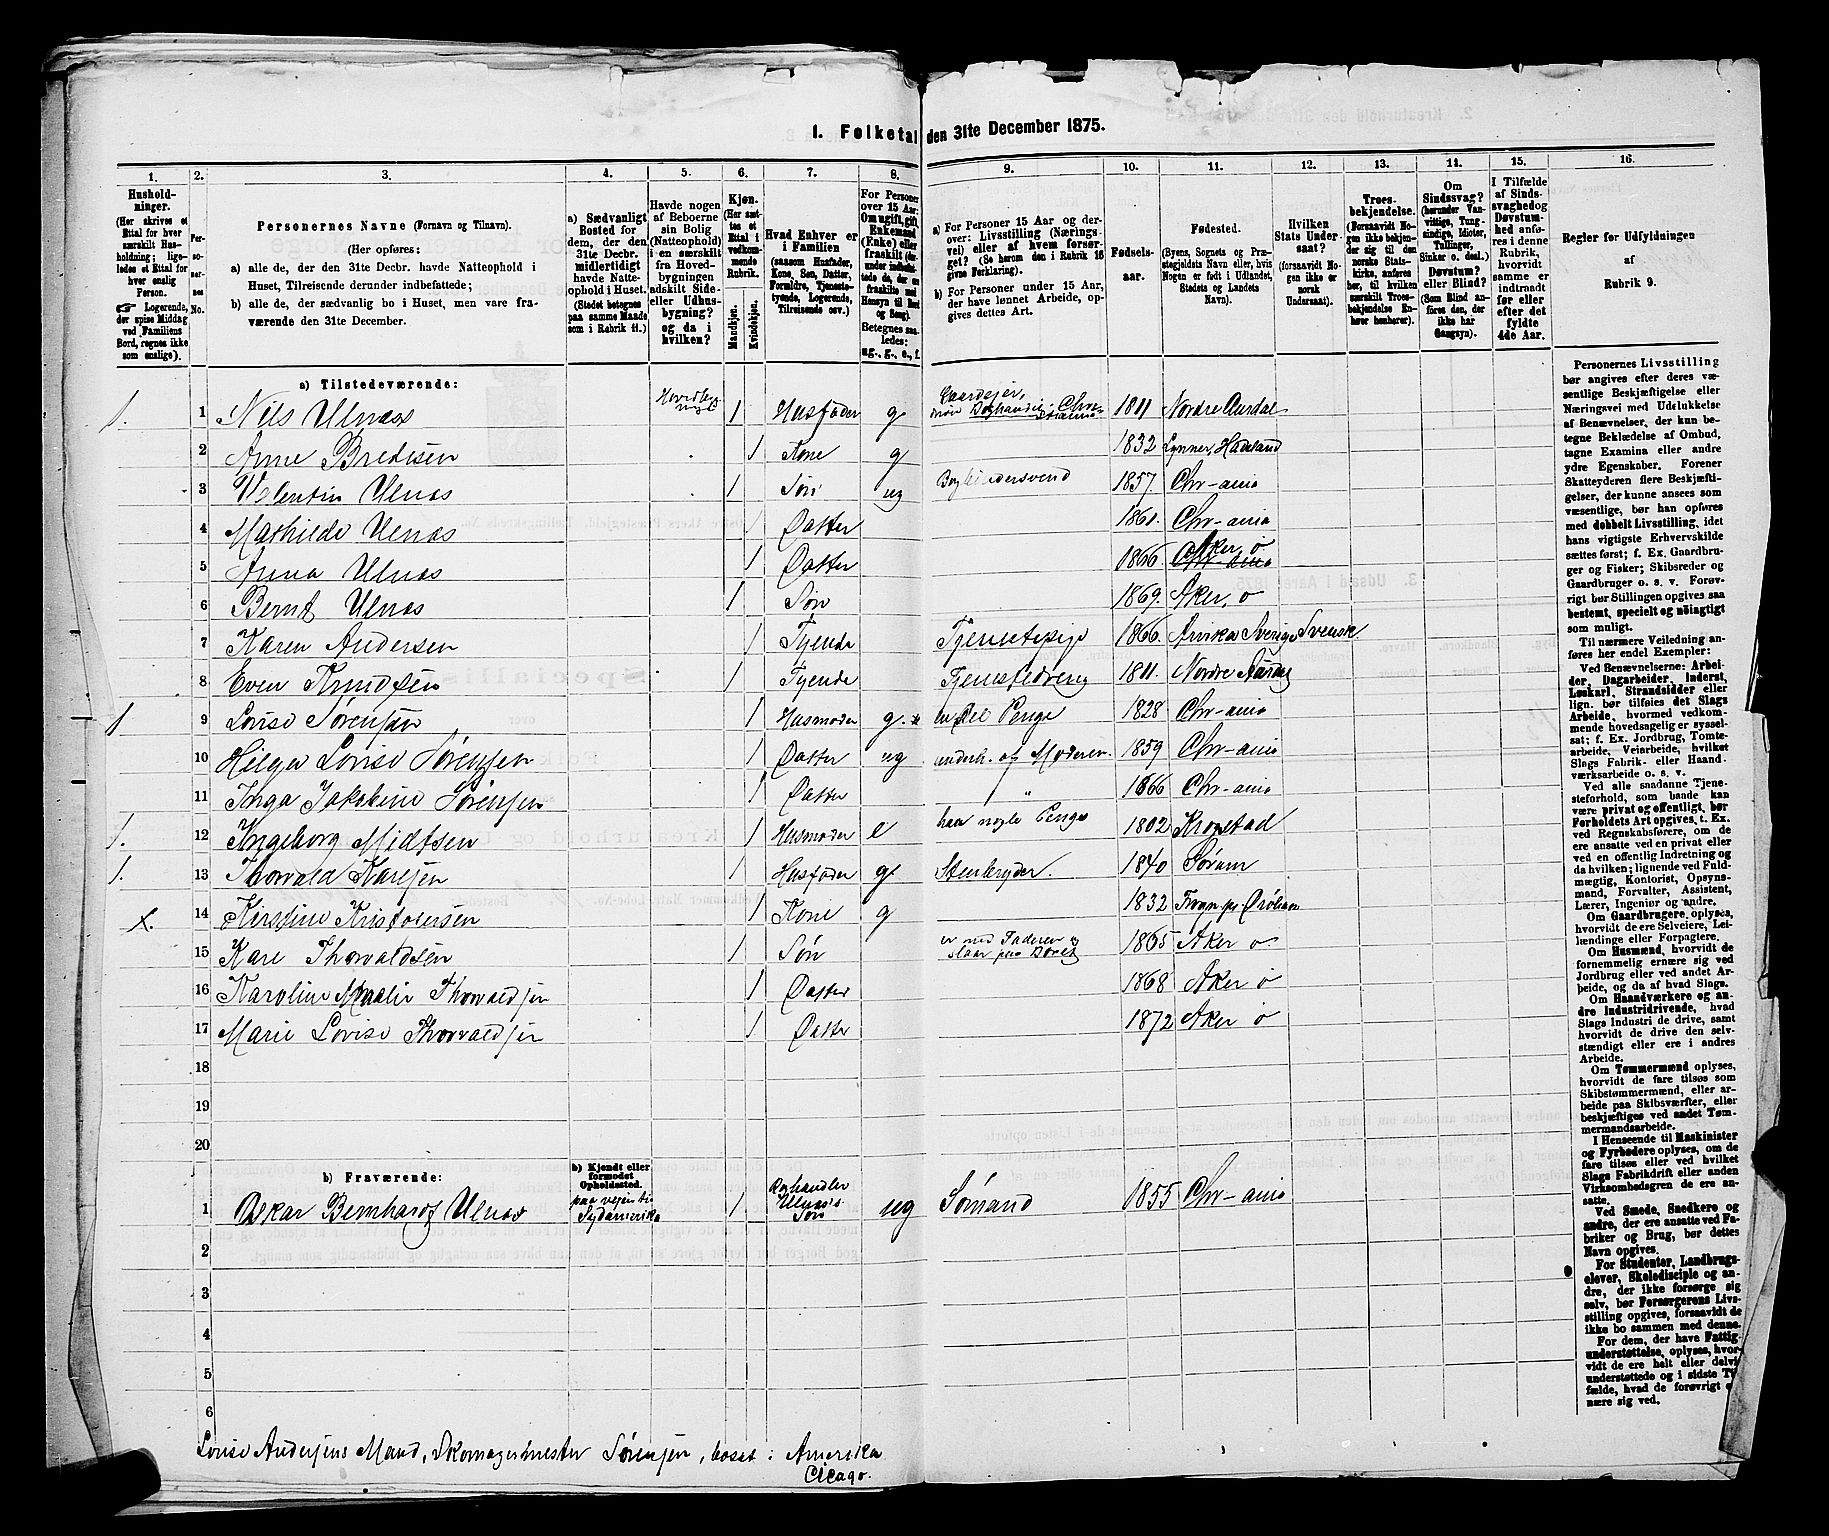 1. Folketal den 31te December 1875.
1. 2. 3. 4. 5. 6. 7. 8. 9. 10. 11. 12. 13. 14. 15. 16.
Husholdninger. (Her skrives et Ettal for hver særskilt Husholdning; ligeledes et Ettal for hver enslig Person. ☞ Logerende, der spise Middag ved Familiens Bord, regnes ikke som enslige).
Personernes No.
Personernes Navne (Fornavn og Tilnavn).
(Her opføres:
a) alle de, der den 31te Decbr. havde Natteophold i Huset, Tilreisende derunder indbefattede;
b) alle de, der sædvanlig bo i Huset, men vare fraværende den 31te December.
a) Sædvanligt Bosted for dem, der den 31te Decbr. midlertidigt havde Natteophold i Huset. (Stedet betegnes paa samme Maade som i Rubrik 11.)
Havde nogen af Beboerne sin Bolig (Natteophold) i en særskilt fra Hovedbygningen adskilt Side- eller Udhusbygning? og da i hvilken?
Kjøn. (Her sættes et Ettal i vedkommende Rubrik.
Mandkjøn. Kvindekjøn.
Hvad Enhver er i Familien (saasom Husfader, Kone, Søn, Datter, Forældre, Tjenestetyende, Logerende, Tilreisende osv.)
For Personer over 15 Aar: Om ugift, gift, Enkemand (Enke) eller fraskilt
Betegnes saaledes: ug., g., e., f.
a) For Personer 15 Aar og derover: Livsstilling (Næringsvei) eller af hvem forsørget? (Se herom den i Rubrik 16 givne Forklaring).
b) For Personer under 15 Aar, der have lønnet Arbeide, opgives dettes Art.
Fødselsaar.
Fødested. (Byens, Sognets og Præstegjeldets Navn, eller, hvis Nogen er født i Udlandet, Stedets og Landets Navn).
Hvilken Stats Undersaat? (forsaavidt Nogen ikke er norsk Undersaat).
Troesbekjendelse. (Forsaavidt Nogen ikke bekjender sig til den norske Statskirke, anføres her, til hvilken særskilt Troesbekjendelse Enhver henhører).
Om Sindssvag? (herunder Vanvittige, Tungsindige, Idioter, Tullinger, Sinker o. desl.) Døvstum? eller Blind? (Som Blind anføres den, der ikke har Gangsyn).
I Tilfælde af Sindssvaghed og Døvstumhed anføres i denne Rubrik, hvorvidt samme er indtraadt før eller efter det fyldte 4de Aar.
Regler for Udfyldningen
af
Rubrik 9.
a) Tilstedeværende:
1. 1 Nils Ulnæs 1 Husfader g Gaardejer, 1811 Nordre Aurdal
2 Anne Bredesen 1 Kone g 1832 Lynner, Hadeland
3 Valentin Ulnæs 1 Søn ug Bogbindersvend 1857. Chr-ania
4 Mathilde Ulnæs 1 Datter 1861. Chr-ania
5 Anna Ulnæs 1 Datter 1866 Aker ø
6 Bernt Ulnæs 1 Søn 1869. Aker, ø
7 Karen Andersen 1 Tyende Tjenestepige 1866. Arvika Sverige Svensk
8 Even Knudsen 1 Tyende Tjenestedreng 1811. Nordre Aurdal
1 9 Lovise Sørensen 1 Husmoder g. en Del Penge 1828 Chr-ania
10 Helga Lovise Sørensen 1 Datter ug underh. af Moderen 1859 Chr-ania
11 Inga Jakobine Sørensen 1 Datter " 1866 Chr-ania
1. 12 Ingeborg Midtsen 1 Husmoder e har nogle Penge 1802 Krogstad
1. 13 Thorvald Karlsen 1 Husfader g. Stenbryder. 1840 Sørum
14 Kirstine Kristofersen 1 Kone g 1832
15 Kare Thorvaldsen 1 Søn er med Faderen og 1865 Aker ø
16 Karoline Thorvaldsen 1 Datter 1868 Aker ø
17 Marie Lovise Thorvaldsen 1 Datter 1872 Aker ø
18
19
20
b) Fraværende:
b) Kjendt eller formodet Opholdssted.
1 Oskar Bernhard Ulnæs paa veien til Sydamerika 1 Boghandler Ulnæs's Søn ug Sømand 1855 Chr-ania
2
3
4
5
6
Lovise Andersens Mand, Skomagermester Sørensen, bosat i Amerika
Chicago.
Personernes Livsstilling
bør angives efter deres væsentlige
Beskjæftigelse eller
Næringsvei med Udelukkelse
af Benævnelser, der kun betegne
Beklædelse af Ombud,
tagne Examina eller andre
ydre Egenskaber. Forener
Skatteyderen flere Beskjæftigelser,
der kunne ansees som
væsentlige, bør han opføres
med dobbelt Livsstilling, idet
hans vigtigste Erhvervskilde
sættes først; f. Ex. Gaardbruger
og Fisker; Skibsreder og
Gaardbruger o. s. v. Forøvrigt
bør Stillingen opgives saa
bestemt, specielt og nøiagtigt
som muligt.
Til nærmere Veiledning anføres
her endel Exempler:
Ved Benævnelserne: Arbeider,
Dagarbeider, Inderst,
Løskarl, Strandsidder eller
lign. bør tilføies det Slags
Arbeide, hvormed vedkommende
hovedsagelig er sysselsat;
f. Ex. Jordbrug, Tomtearbeide,
Veiarbeide, hvilket
Slags Fabrik- eller Haandværksarbeide
o. s. v.
Ved alle saadanne Tjenesteforhold,
som baade kan
være privat og offentligt, bør
Forholdets Art opgives, t. Ex.
ved Regnskabsførere, om de
ere ansatte ved en privat eller
ved en offentlig Indretning og
da hvilken; lignende ved Fuldmægtig,
Kontorist, Opsynsmand,
Forvalter, Assistent,
Lærer, Ingeniør og andre.
Om Gaardbrugere, oplyses,
hvorvidt de ere Selveiere, Leilændinge
eller Forpagtere.
Om Husmænd, hvorvidt de
fornemmelig ernære sig ved
Jordbrug eller ved andet Arbeide,
og da af hvad Slags.
Om Haandværkere og andre
Industridrivende, hvad
Slags Industri de drive, samt
hvorvidt de drive den selvstændigt
eller ere i andres
Arbeide.
Om Tømmermænd oplyses,
hvorvidt de fare tilsøs som
Skibstømmermænd, eller arbeide
paa Skibsværfter, eller
beskjæftiges ved andet Tømmermandsarbeide.
I Henseende til Maskinister
og Fyrbødere oplyses, om de
fare tilsøs eller ved hvilket
Slags Fabrikdrift eller anden
Virksomhedsgren de ere ansatte.
Ved Smede, Snedkere og
andre, der ere ansatte ved Fabriker
og Brug, bør dettes
Navn opgives.
For Studenter, Landbrugselever,
Skoledisciple og andre,
der ikke forsørge sig
selv, bør Forsørgerens Livsstilling
opgives, forsaavidt de
ikke bo sammen med denne.
For dem, der have Fattigunderstøttelse,
oplyses, hvorvidt
de ere helt eller delvis
understøttede og i sidste Tilfælde,
hvad de forøvrigt ernære
sig ved.